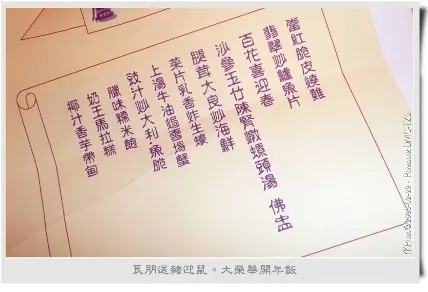 當紅脆皮燒雞
翡翠炒鱸魚片
百花喜迎春
沙參玉竹陳腎燉螺頭湯 佛盅
腿茸大良炒海鮮
菜片乳香炸生蠔
上湯牛油焗雪場蟹
豉汁炒大利·魚脆
臘味糯米飽
奶王馬拉糕
椰汁香芋帶甸
良朋送豬迎鼠。大榮華開年飯